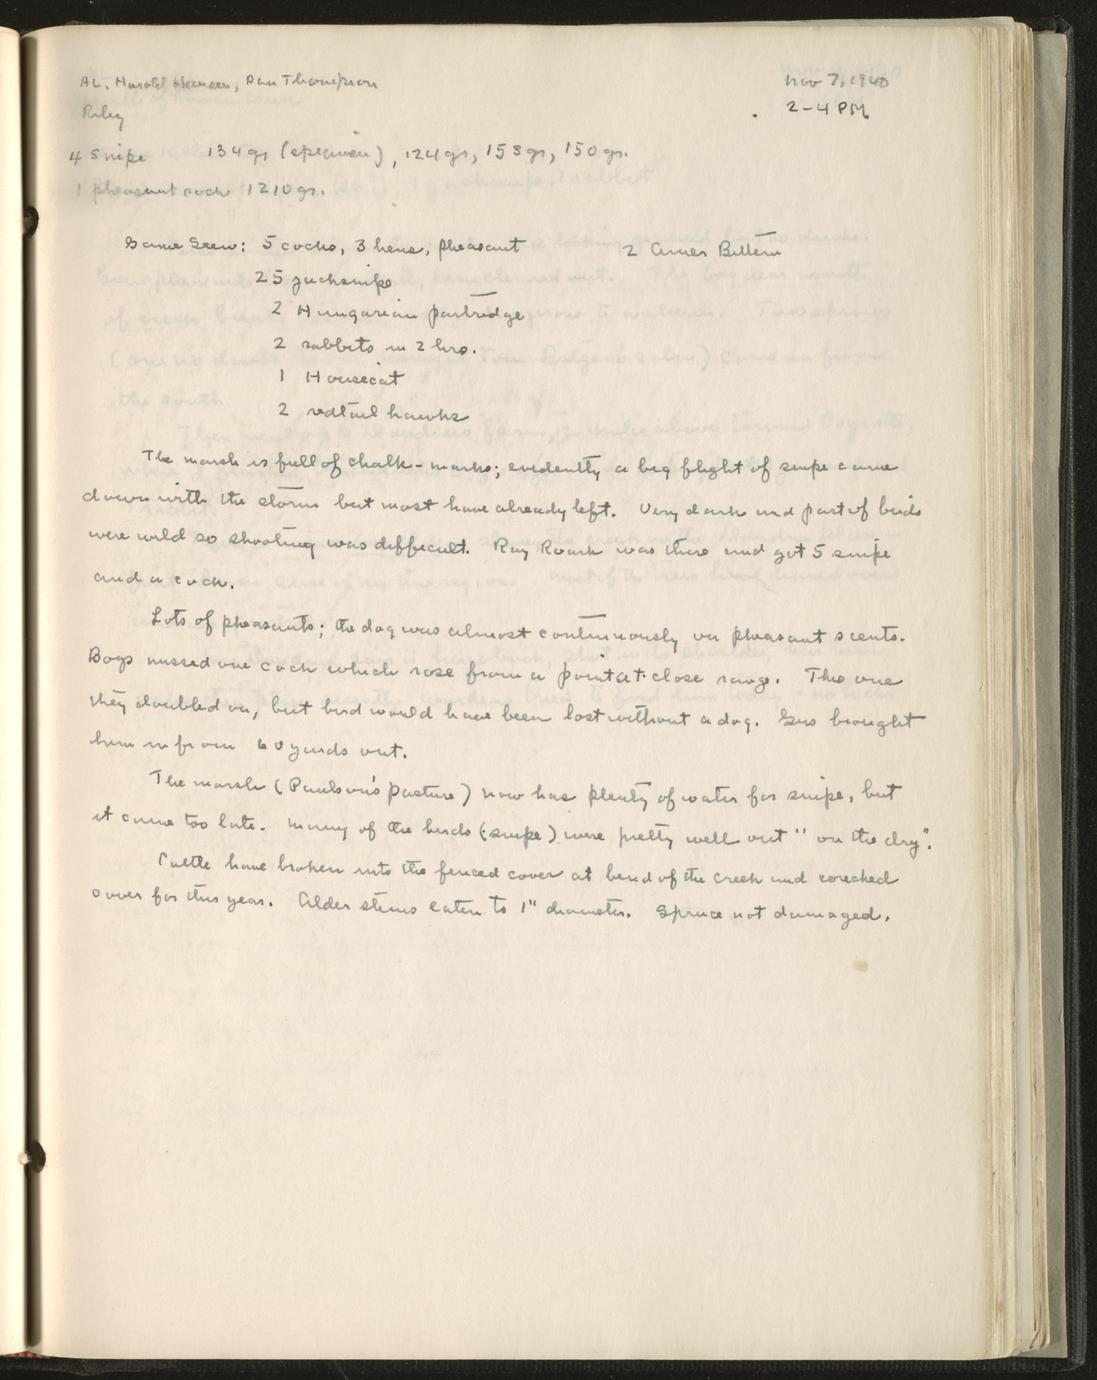 AL, Harold Hansen, Dan Thompson
Nov 7, 1940
Riley
2-4 PM
4 Snipe 134 gr (specimen), 124 gr, 158 gr, 150 gr.
1 pheasant cock 1210 gr.
Game Seen: 5 cocks, 3 hens, pheasant 2 Amer Bittern
25 jacksnipe
2 Hungarian partridge
2 rabbits in 2 hrs.
1 Housecat
2 redtail hawks
The marsh is full of chalk-marks; evidently a big flight of snipe came
down with the storm but most have already left. Very dark and part of birds
were wild so shooting was difficult. Ray Roark was there and got 5 snipe
and a cock.
Lots of pheasants; the dog was almost continuously on pheasant scents.
Boys missed one cock which rose from a point at close range. The one
they doubled on, but bird would have been lost without a dog. Gus brought
him in from 60 yards out.
The marsh (Paulson's pasture) now has plenty of water for snipe, but
it came too late. Many of the birds (snipe) were pretty well out "on the dry".
Cattle have broken into the fenced cover at bend of the creek and wrecked
cover for this year. Alder stems eaten to 1" diameter. Spruce not damaged.